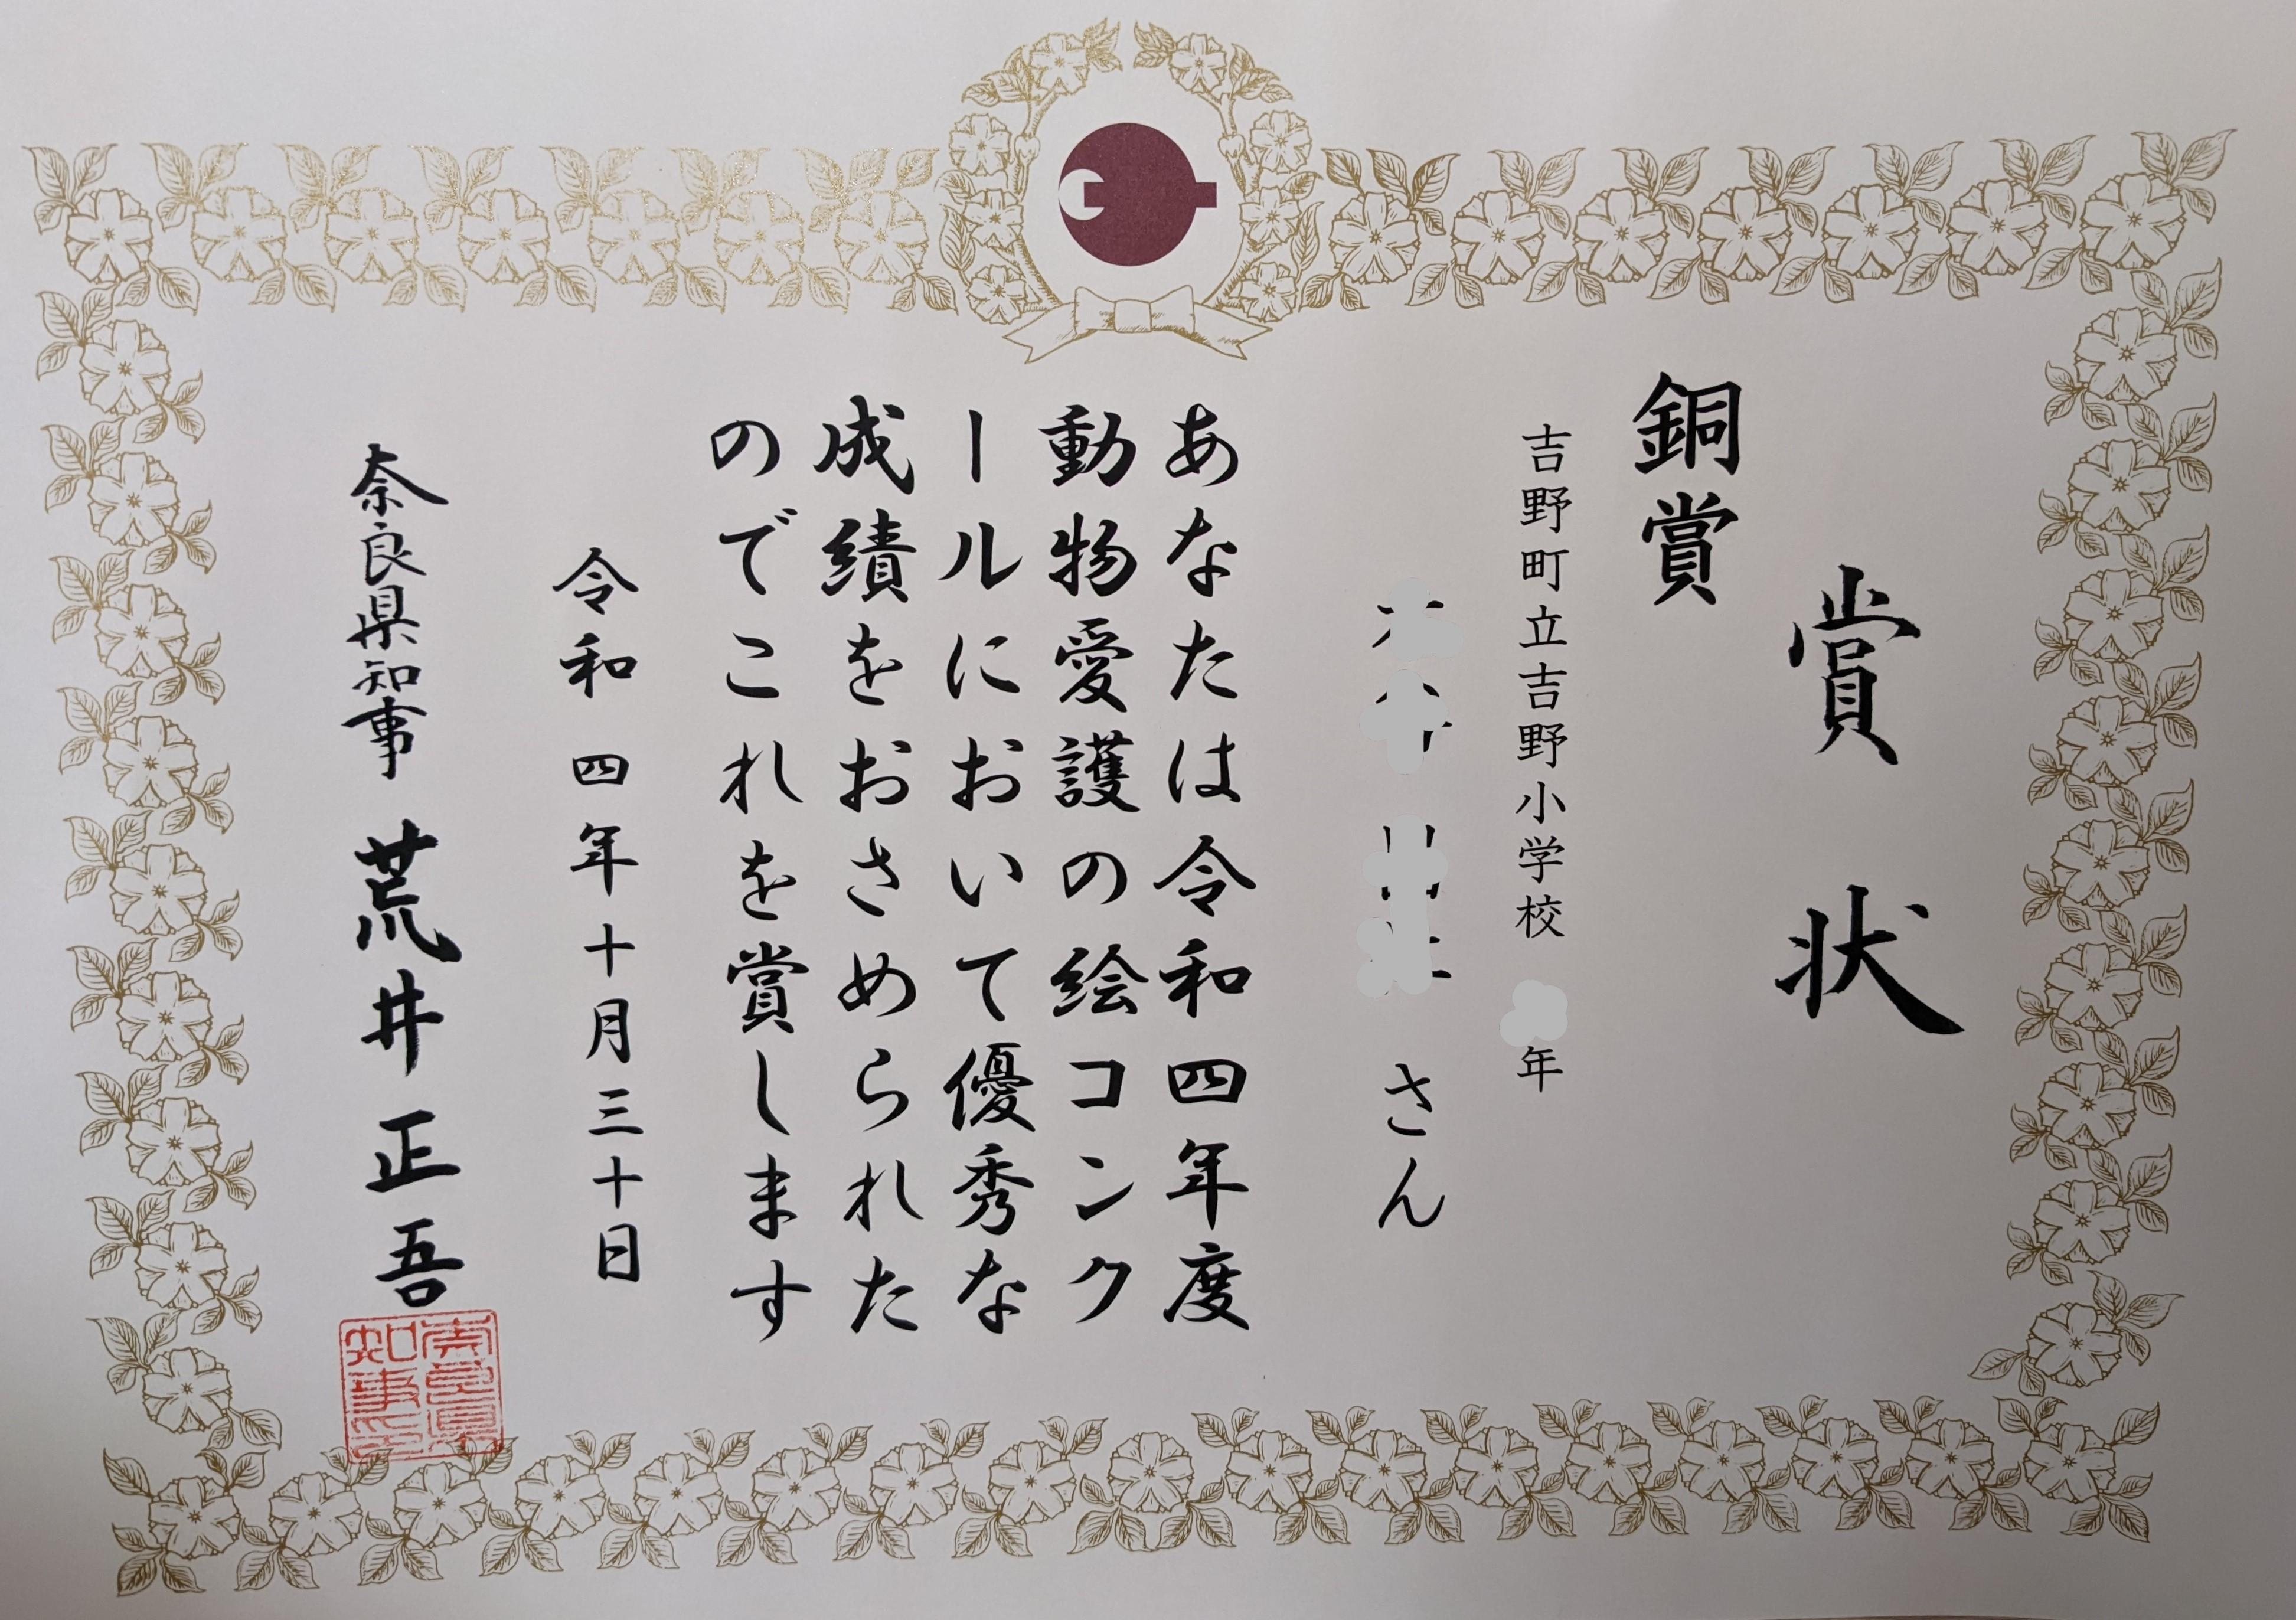 賞状
銅賞
吉野町立吉野小学校 年
さん
あなたは令和四年度
動物愛護の絵コンク
ールにおいて優秀な
成績をおさめられた
のでこれを賞します
令和四年十月三十日
奈良県知事 荒井正吾
奈良県
知事印